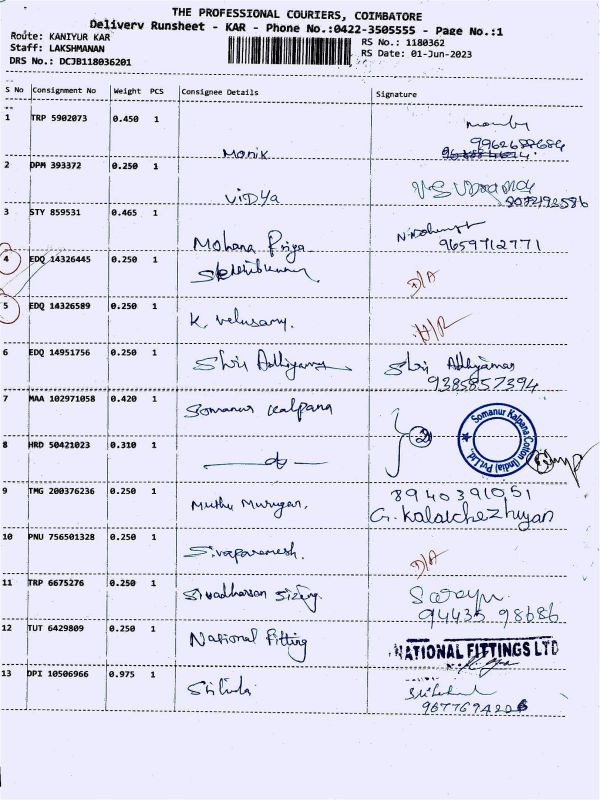 THE PROFESSIONAL COURIERS, COIMBATORE
Delivery Runsheet - KAR - Phone No.:0422-3505555 - Page No.:1
Route: KANIYUR KAR
RS No.: 1180362
Staff: LAKSHMANAN
RS Date: 01-Jun-2023
DRS No.: DCJB118036201
S No Consignment No Weight PCS Consignee Details Signature
1 TRP 5902073 0.450 1
Monik
2 DPM 393372 0.250 1
Vidya
3 STY 859531 0.465 1
Mohana Priya 9659712771
4 EDQ 14326445 0.250 1
D/A
5 EDQ 14326589 0.250 1
K. Velusamy.
6 EDQ 14951756 0.250 1 Shri Adhiyaman Shri Adhiyaman
9385857394
7 MAA 102971058 0.420 1 Somanur Kalpana
2
Somanur Kalpana Cotton (India) Pvt Ltd.
8 HRD 50421023 0.310 1
9 TMG 200376236 0.250 1 8940391051
Muthu Murugan, G. Kalaichezhiyan
10 PNU 756501328 0.250 1
Sivaparamesh. D/A
11 TRP 6675276 0.250 1
Sivadharsan Sizing Sarayu
94435 98686
12 TUT 6429809 0.250 1 National Fitting NATIONAL FITTINGS LTD
13 DPI 10506966 0.975 1